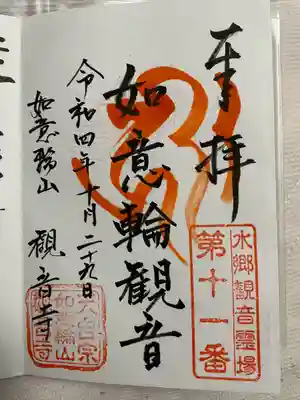 奉拝
水郷觀音霊場
第十一番
如意輪觀音
令和四年十月二十九日
如意輪山 觀音寺
天台宗
如意輪山
觀音寺